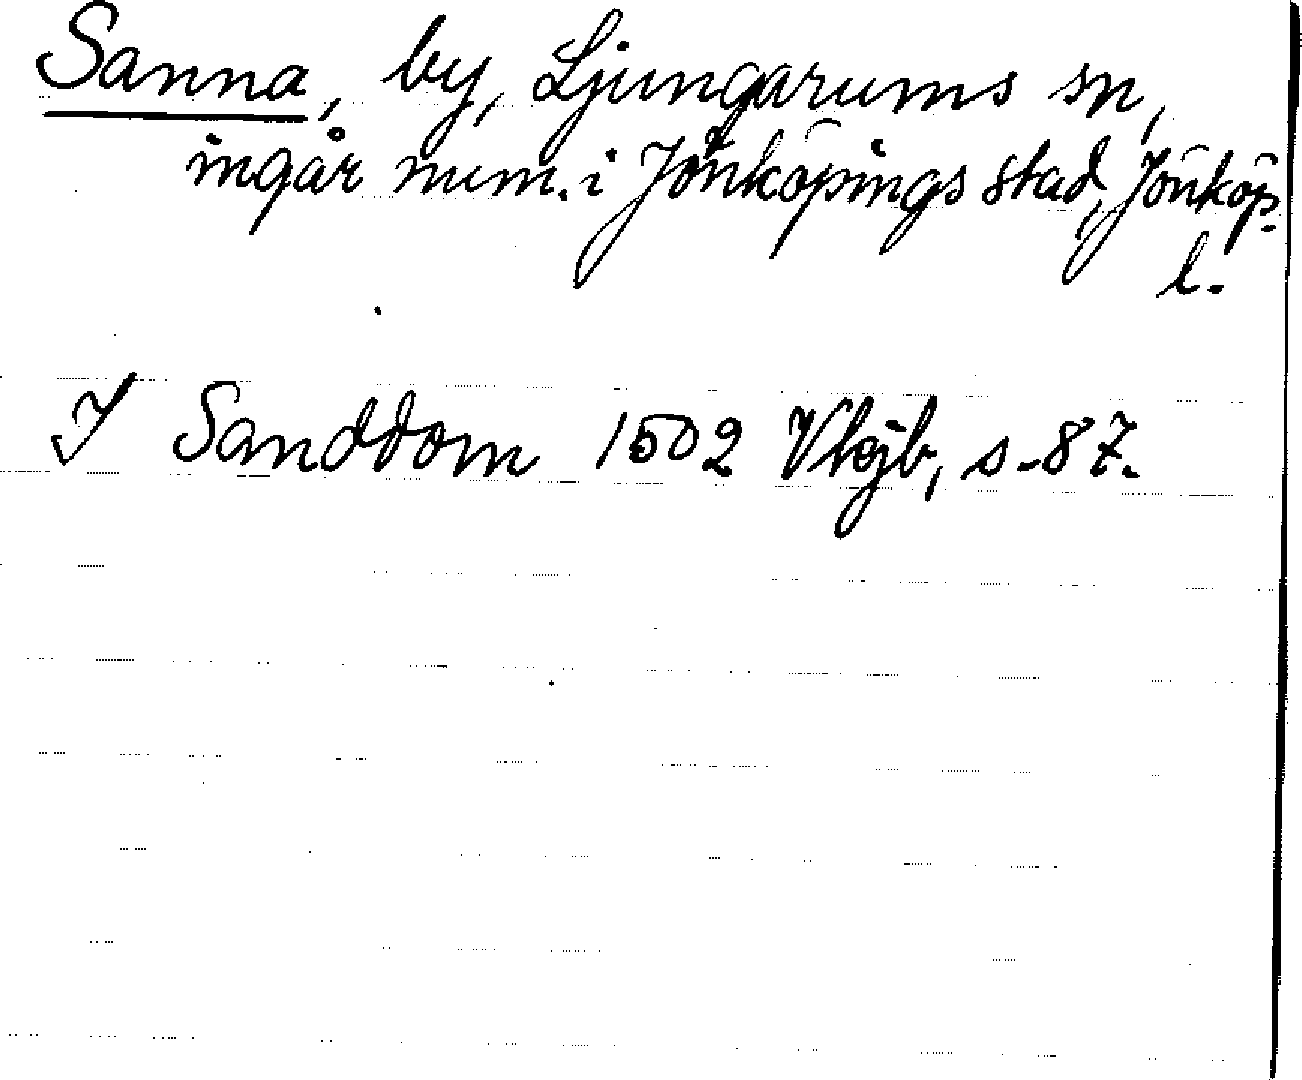 Sanna, by, Ljungarums sn,
ingår num. i Jönköpings stad, Jönköp.
l.
I Sanddom 1502 Vkjb, s. 87.